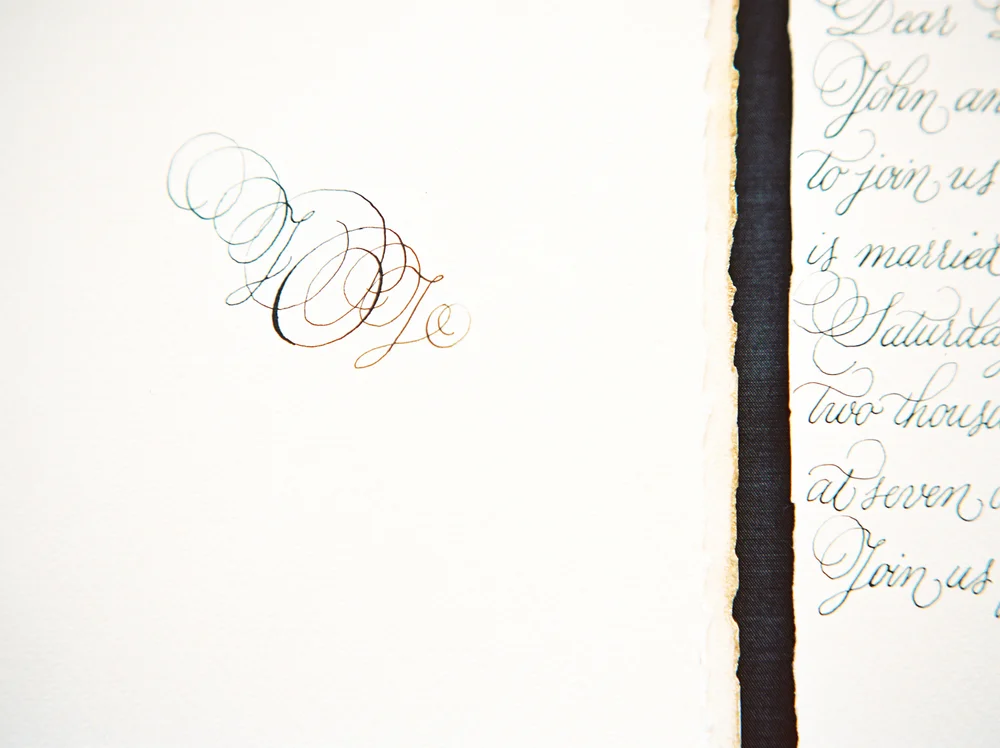 Dear
John an
to join us
is married
Saturda
two thousa
at seven
Join us